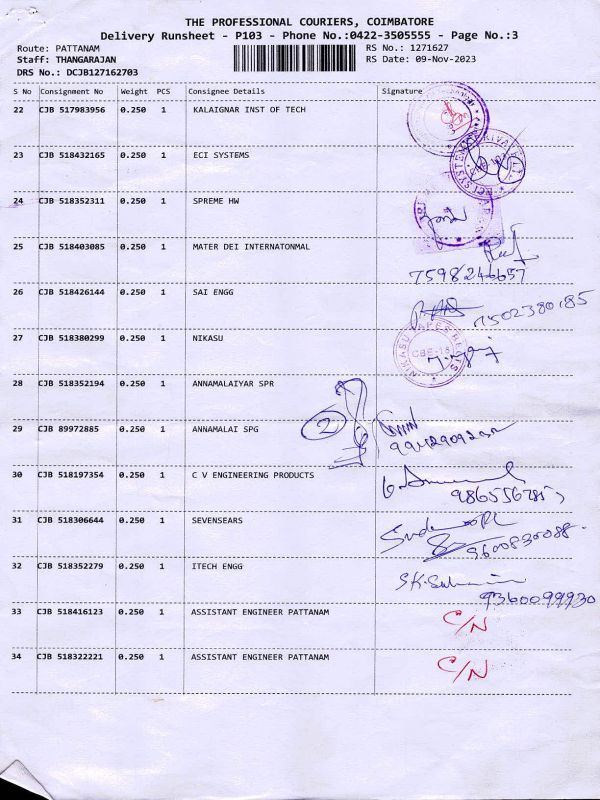 THE PROFESSIONAL COURIERS, COIMBATORE
Delivery Runsheet - P103 - Phone No.:0422-3505555 - Page No.:3
Route: PATTANAM RS No.: 1271627
Staff: THANGARAJAN RS Date: 09-Nov-2023
DRS No.: DCJB127162703
S No Consignment No Weight PCS Consignee Details Signature
22 CJB 517983956 0.250 1 KALAIGNAR INST OF TECH
23 CJB 518432165 0.250 1 ECI SYSTEMS
24 CJB 518352311 0.250 1 SPREME HW
25 CJB 518403085 0.250 1 MATER DEI INTERNATONMAL
7598246657
26 CJB 518426144 0.250 1 SAI ENGG
7502380185
27 CJB 518380299 0.250 1 NIKASU
CBE-16
28 CJB 518352194 0.250 1 ANNAMALAIYAR SPR
29 CJB 89972885 0.250 1 ANNAMALAI SPG
2
30 CJB 518197354 0.250 1 C V ENGINEERING PRODUCTS
31 CJB 518306644 0.250 1 SEVENSEARS
9600830088
32 CJB 518352279 0.250 1 ITECH ENGG
9360099930
33 CJB 518416123 0.250 1 ASSISTANT ENGINEER PATTANAM C/N
34 CJB 518322221 0.250 1 ASSISTANT ENGINEER PATTANAM C/N